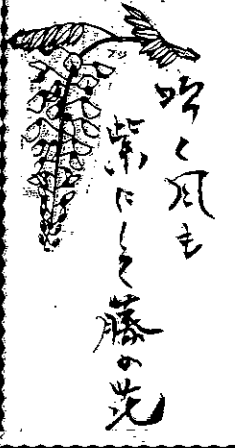 吹く風も
紫にして藤の花